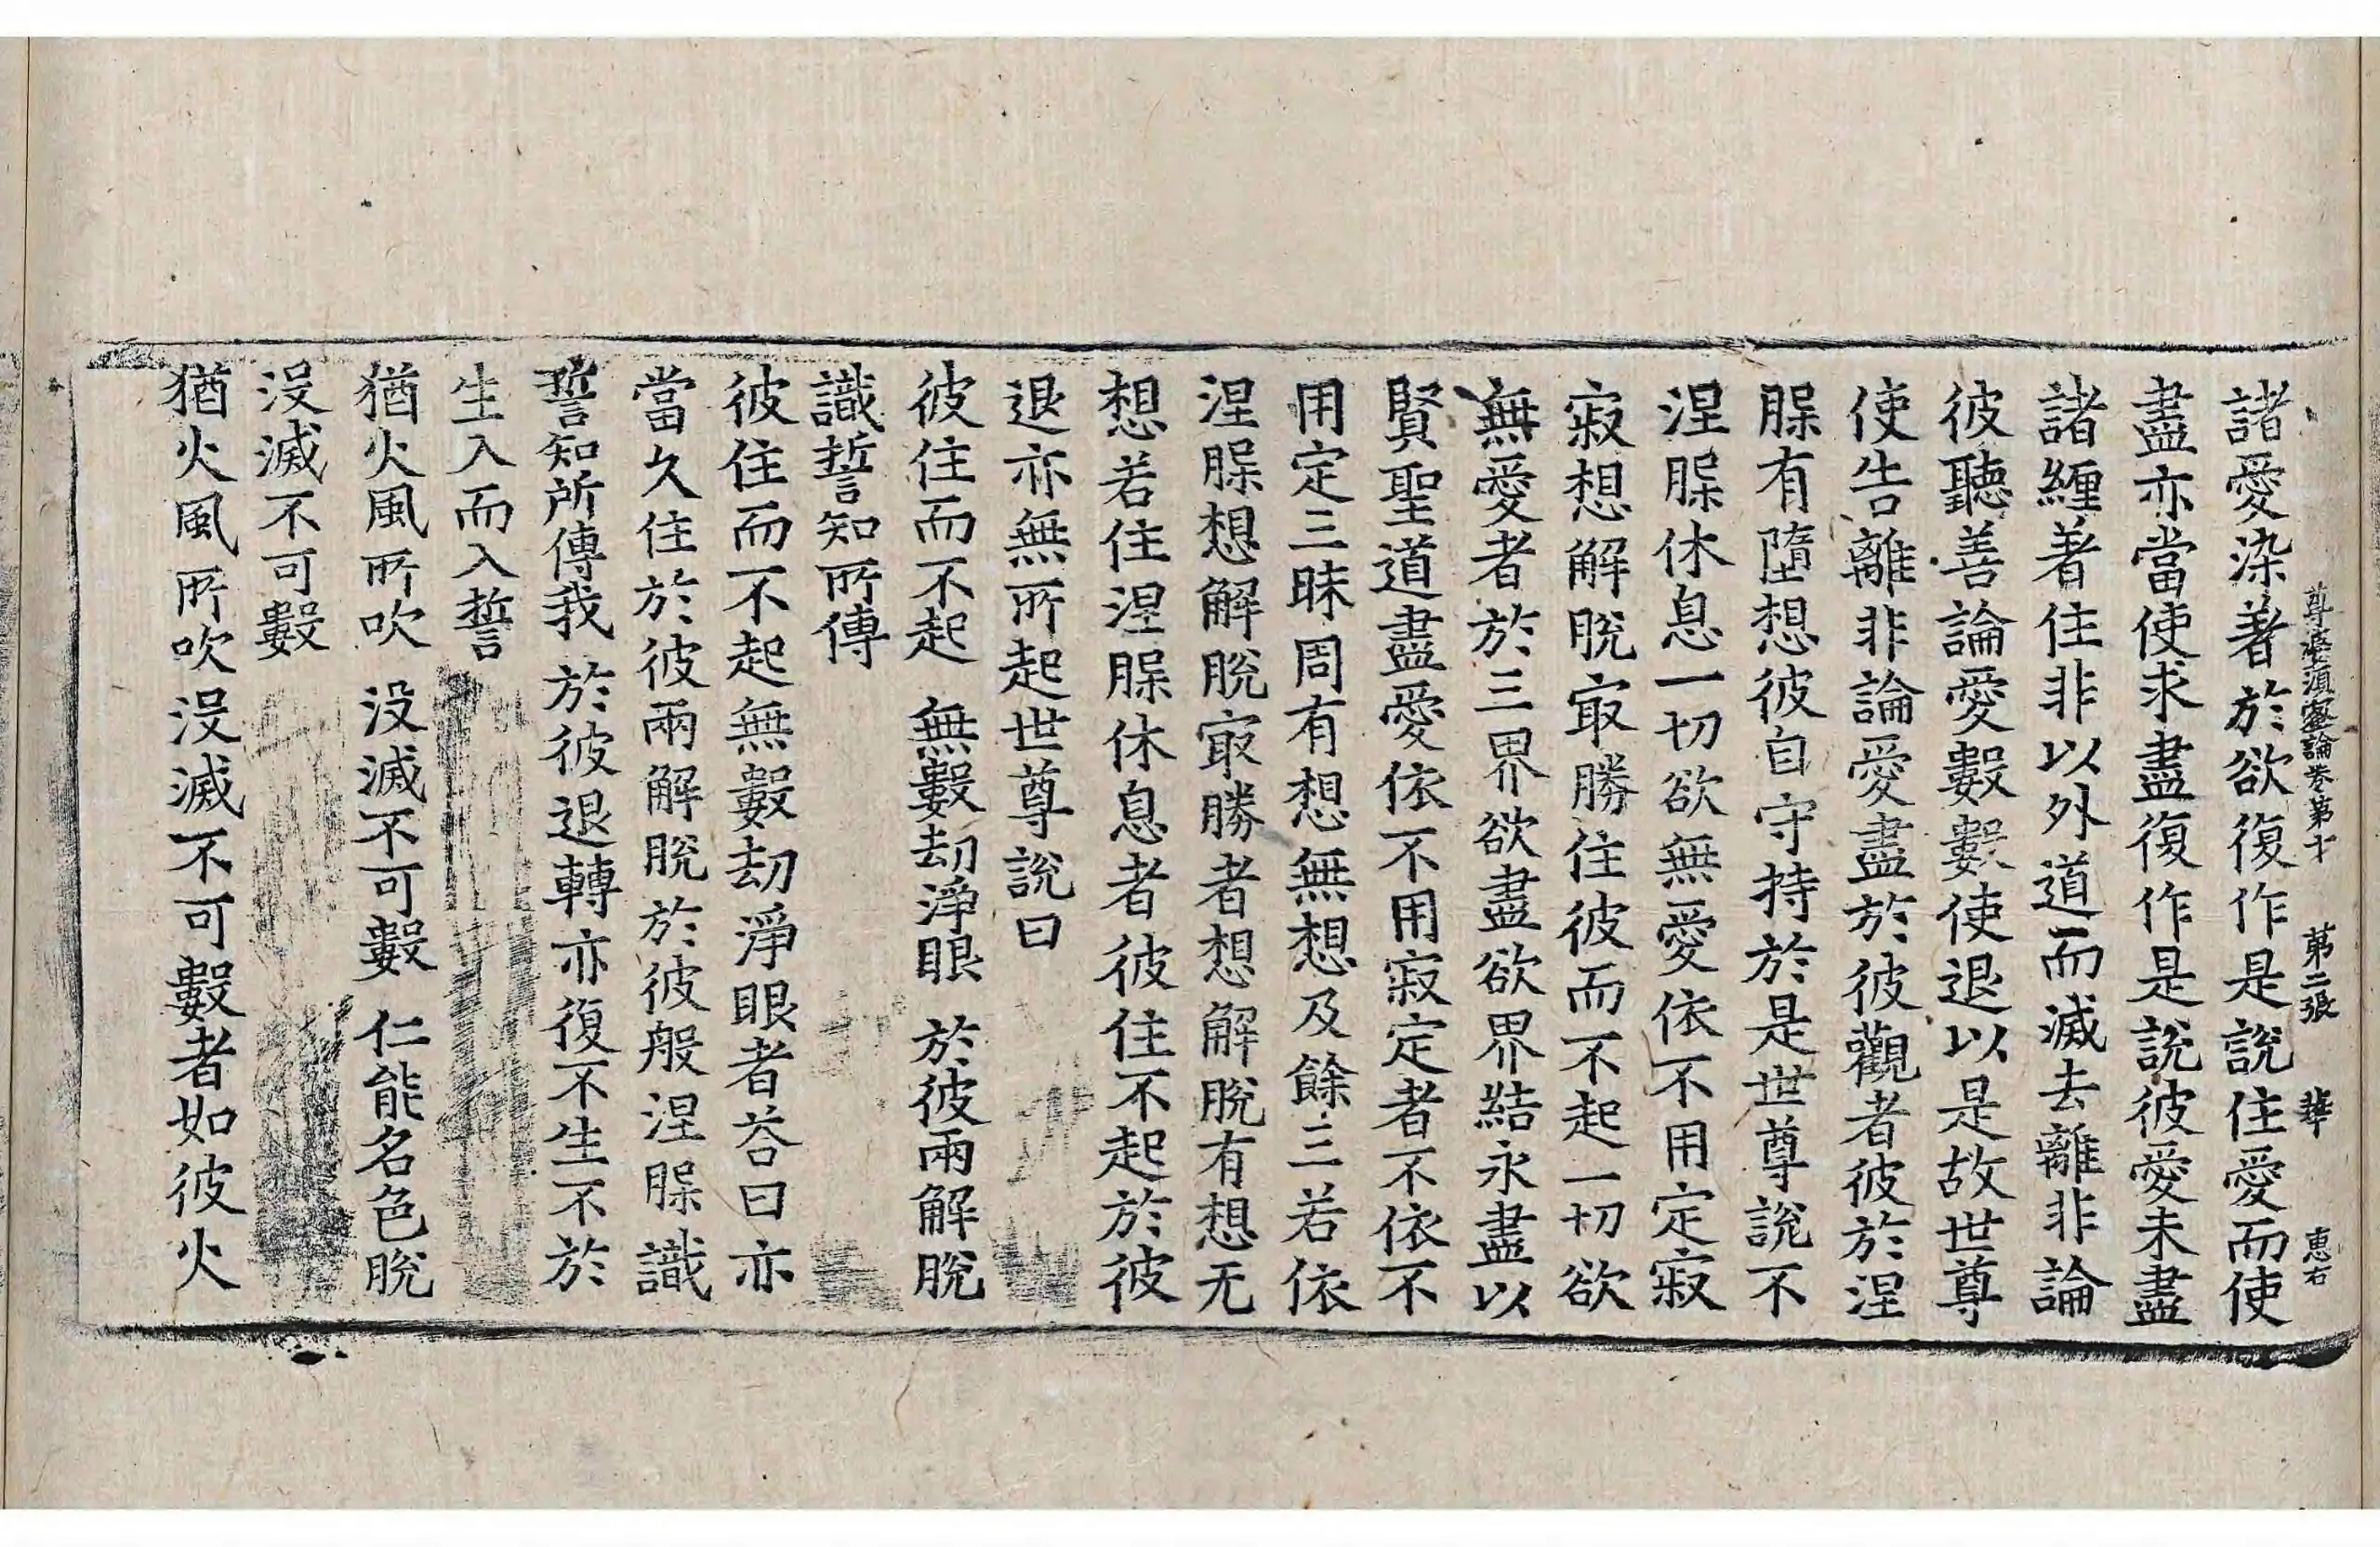 尊婆須蜜論卷第十 第二張 華 恵右
諸愛染著於欲復作是說住愛而使
盡亦當使求盡復作是說彼愛未盡
諸纏著住非以外道而滅去離非論
彼聽善論愛數數使退以是故世尊
使告離非論愛盡於彼觀者彼於涅
腂有墮想彼自守持於是世尊說不
涅腂休息一切欲無愛依不用定寂
寂想解脫冣勝住彼而不起一切欲
無愛者於三界欲盡欲界結永盡以
賢聖道盡愛依不用寂定者不依不
用定三昧周有想無想及餘三若依
涅腂想解脫冣勝者想解脫有想无
想若住涅腂休息者彼住不起於彼
退亦無所起世尊說曰
彼住而不起 無數劫淨眼 於彼兩解脫
識誓知所傳
彼住而不起無數劫淨眼者荅曰亦
當久住於彼兩解脫於彼般涅腂識
誓知所傳我於彼退轉亦復不生不於
生入而入誓
猶火風所吹 没滅不可數 仁能名色脫
没滅不可數
猶火風所吹没滅不可數者如彼火